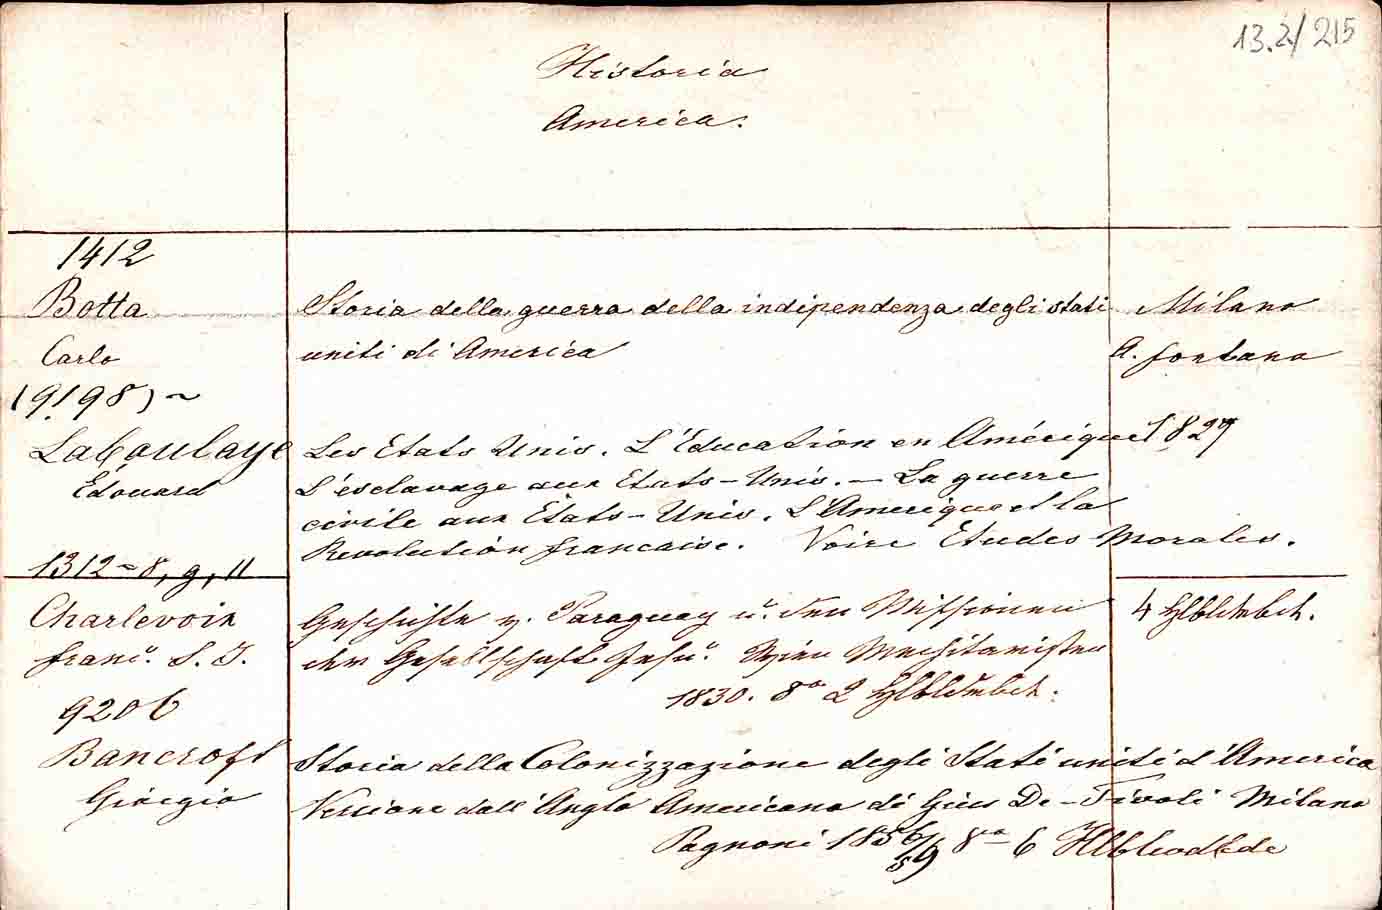 13.2/215
Historia
America.
1412
Botta
Carlo
Storia della guerra della indipendenza degli stati
uniti di America
Milano
A. Fontana
1829
19198)~
Laboulaye
Édouard
Les Etats Unis. L'Éducation en Amérique
L'esclavage aux Etats-Unis. - La guerre
civile aux États-Unis. L'Amerique et la
Revolution francaise. Voire Etudes Morales.
1312=8, 9, 11
Charlevoix
Franc. S. J.
Geschichte v. Paraguay u. den Missionen
der Gesellschaft Jesu. Wien Mechitaristen
1830. 8o 2 Hlbldrbdt.
4 Hlbldrbdt.
9206
Bancroft
Giorgio
Storia della Colonizzazione degli Stati uniti d'America
Versione dall'Anglo Americano di Gius De-Tivoli Milano
Pagnoni 1856/59 8vo 6